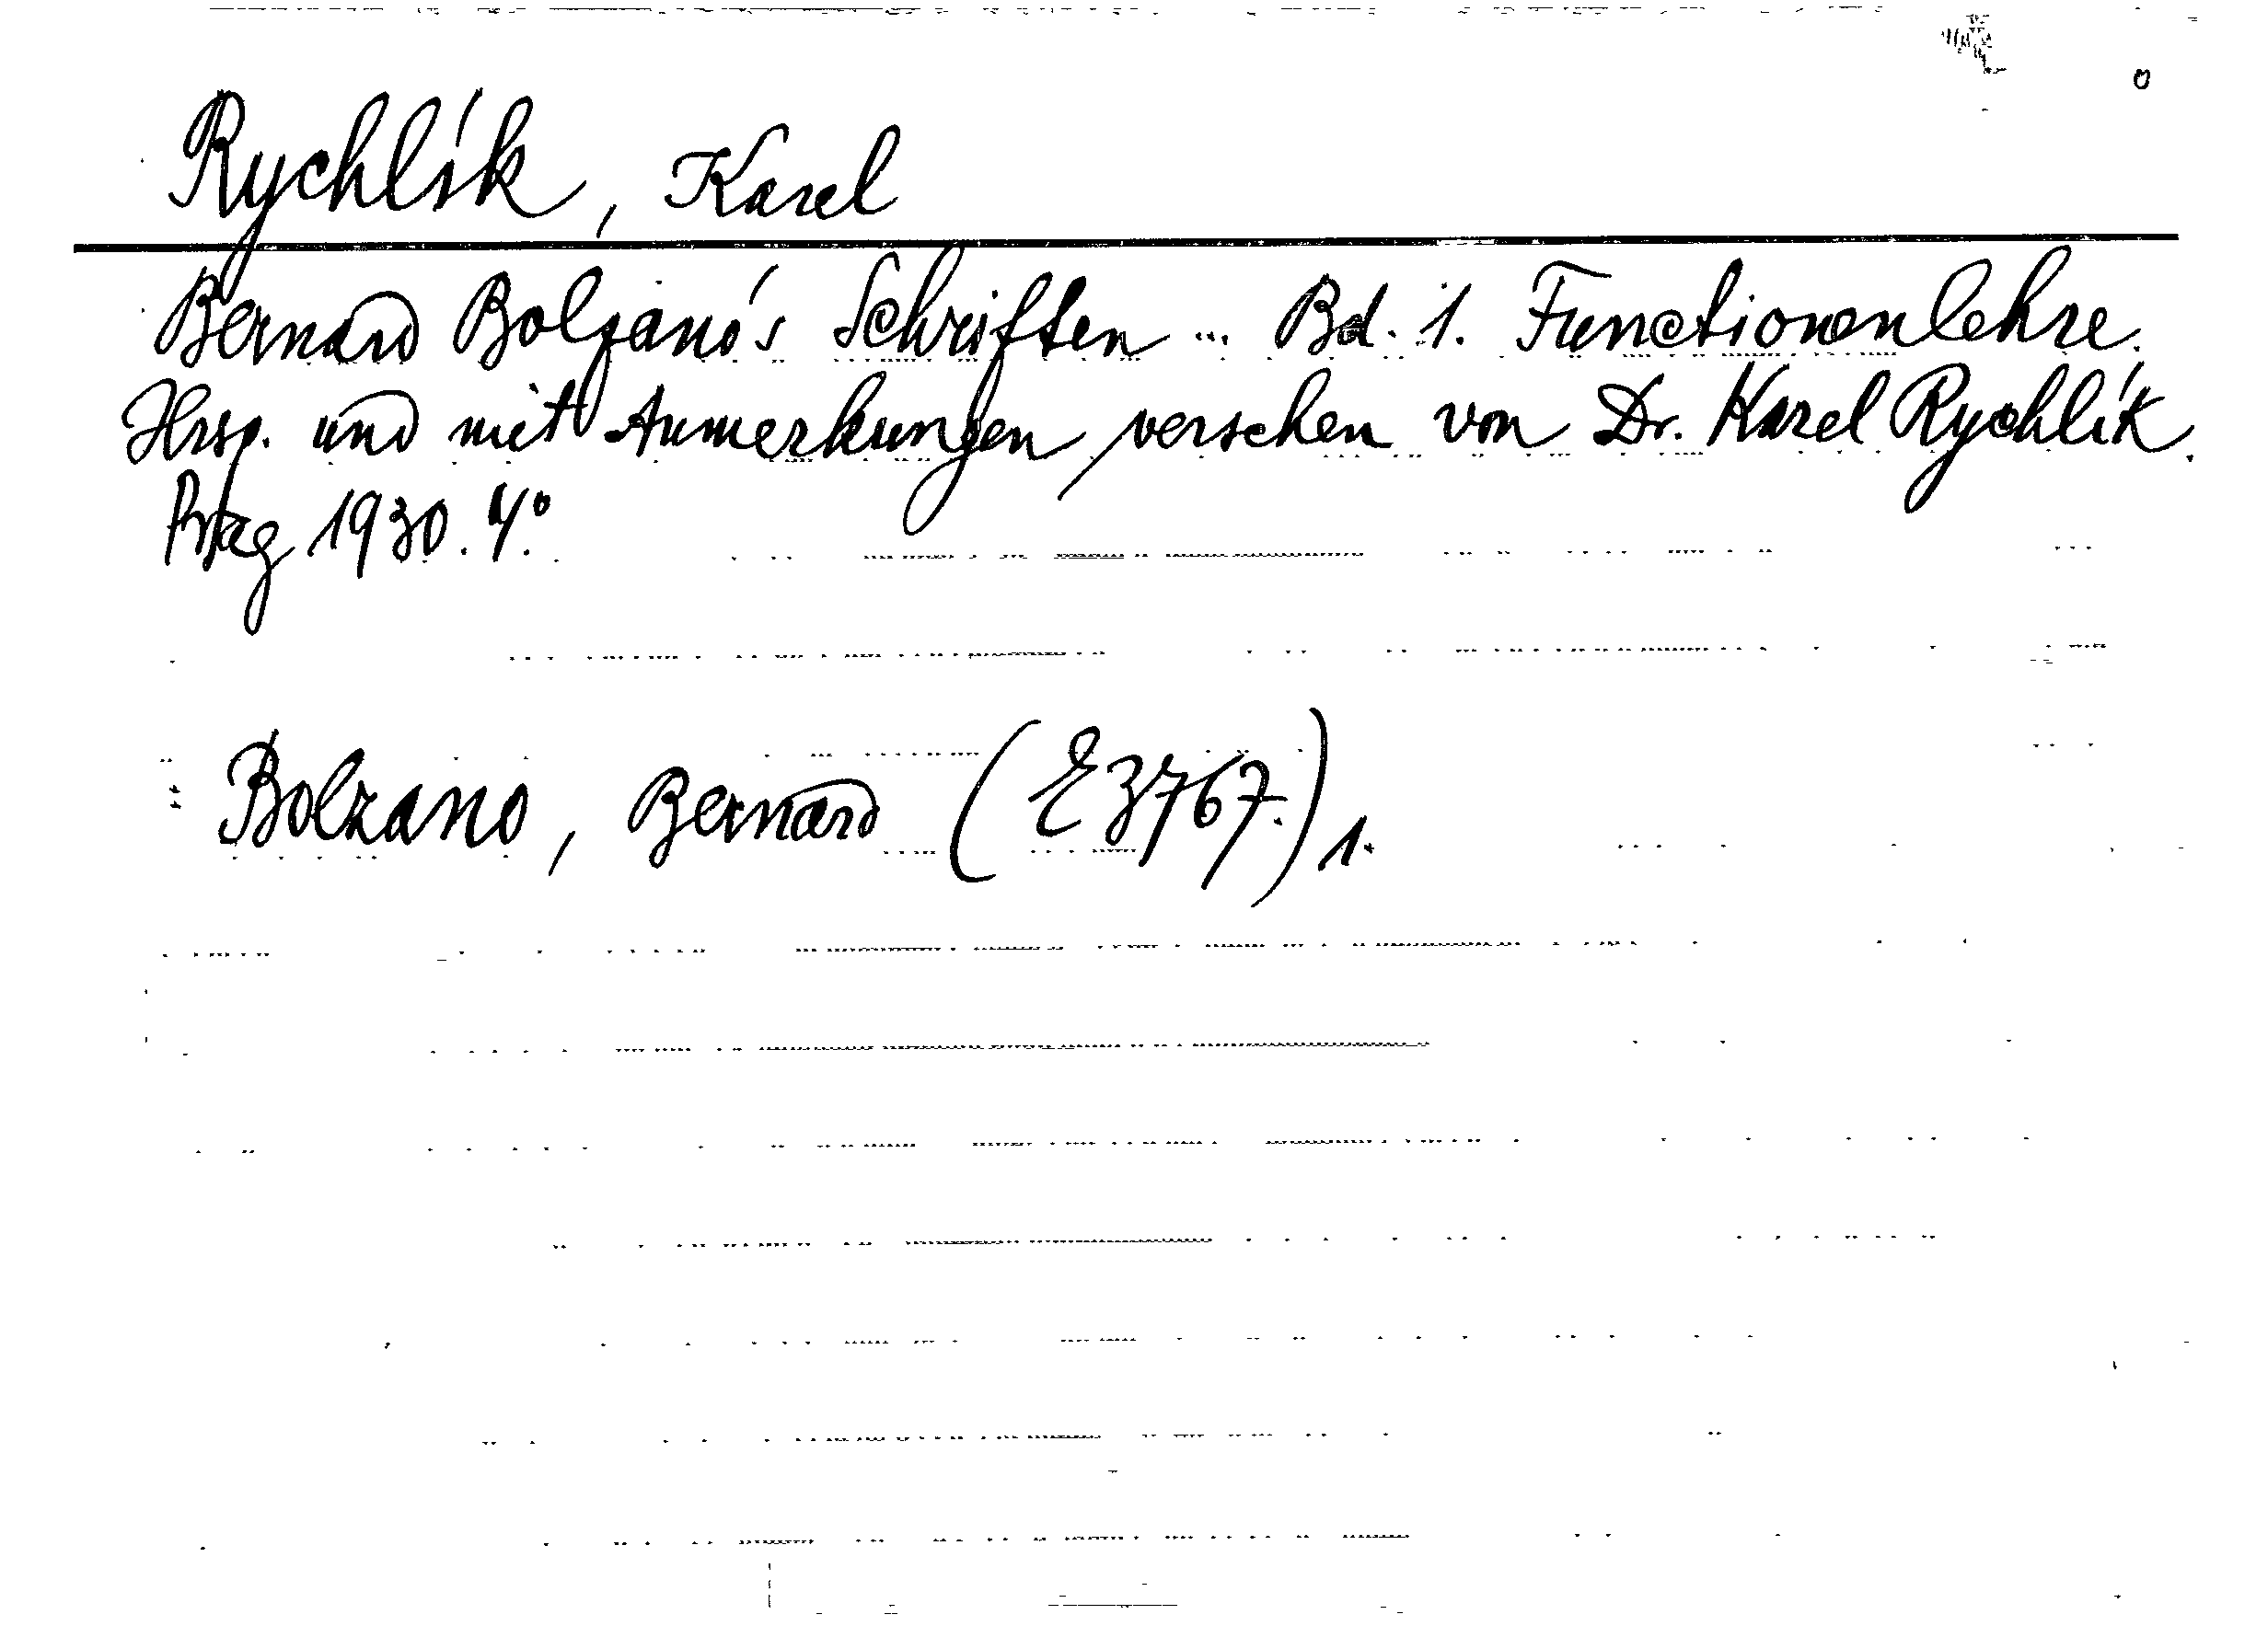 Rychlík, Karel
Bernard Bolzano's Schriften ... Bd. 1. Functionenlehre.
Hrsg. und mit Anmerkungen versehen von Dr. Karel Rychlík.
Prag 1930. 4°.
Bolzano, Bernard (E 3767.) 1.